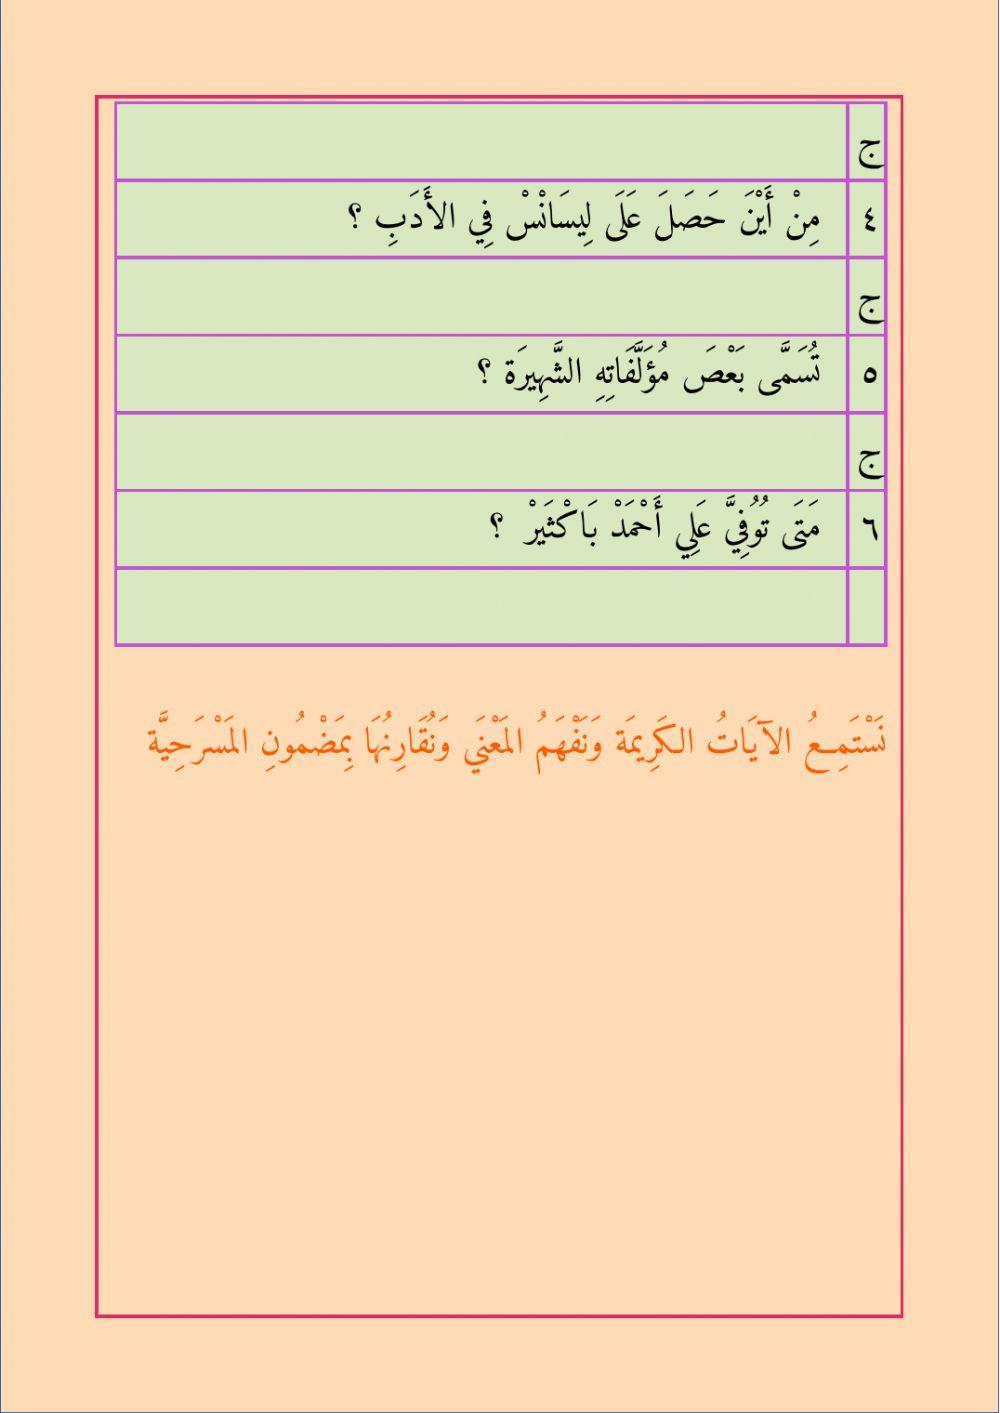 ج
٤ مِنْ أَيْنَ حَصَلَ عَلَى لِيسَانْسْ فِي الأَدَبِ ؟
ج
٥ تُسَمَّى بَعْضَ مُؤَلَّفَاتِهِ الشَّهِيرَة ؟
ج
٦ مَتَى تُوُفِيَّ عَلِي أَحْمَدْ بَاكْثَيْرْ ؟
نَسْتَمِعُ الآيَاتُ الكَرِيمَة وَنَفْهَمُ المَعْنَي وَنُقَارِنُهَا بِمَضْمُونِ المَسْرَحِيَّة